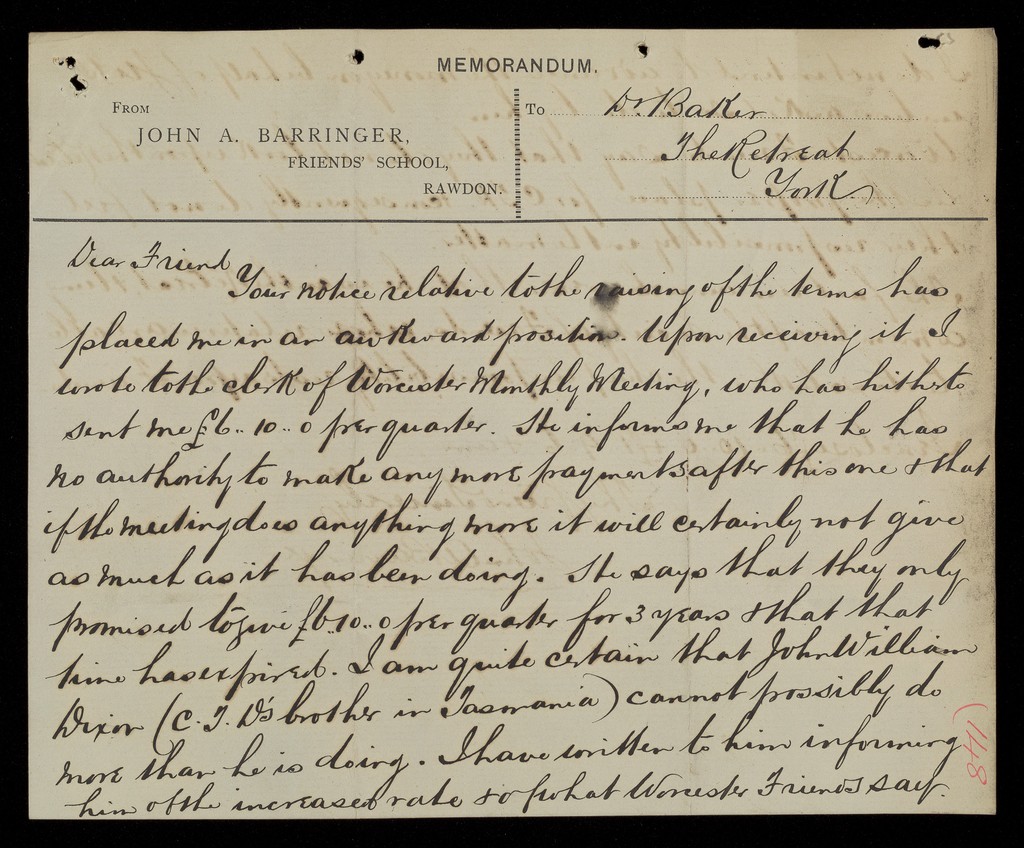 MEMORANDUM.
FROM
JOHN A. BARRINGER,
FRIENDS' SCHOOL,
RAWDON.
To Dr. Baker
The Retreat
York
Dear Friend
Your notice relative to the raising of the terms has
placed me in an awkward position. Upon receiving it I
wrote to the clerk of Worcester Monthly Meeting, who has hitherto
sent me £6.. 10.. 0 per quarter. He informs me that he has
no authority to make any more payments after this one & that
if the meeting does anything more it will certainly not give
as much as it has been doing. He says that they only
promised to give £6..10..0 per quarter for 3 years & that that
time has expired. I am quite certain that John William
Dixon (C. J. D's brother in Tasmania) cannot possibly do
more than he is doing. I have written to him informing
him of the increased rate & of what Worcester Friends say.
1148